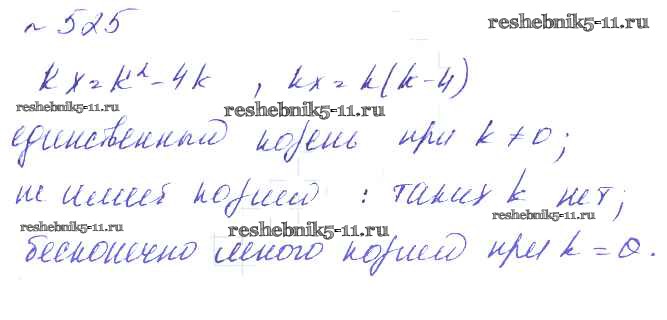 № 525
reshebnik5-11.ru
kx = k² - 4k , kx = k(k-4)
reshebnik5-11.ru reshebnik5-11.ru
единственный корень при k ≠ 0;
не имеет корней : таких k нет;
reshebnik5-11.ru reshebnik5-11.ru reshebnik5-11.ru
бесконечно много корней при k = 0.